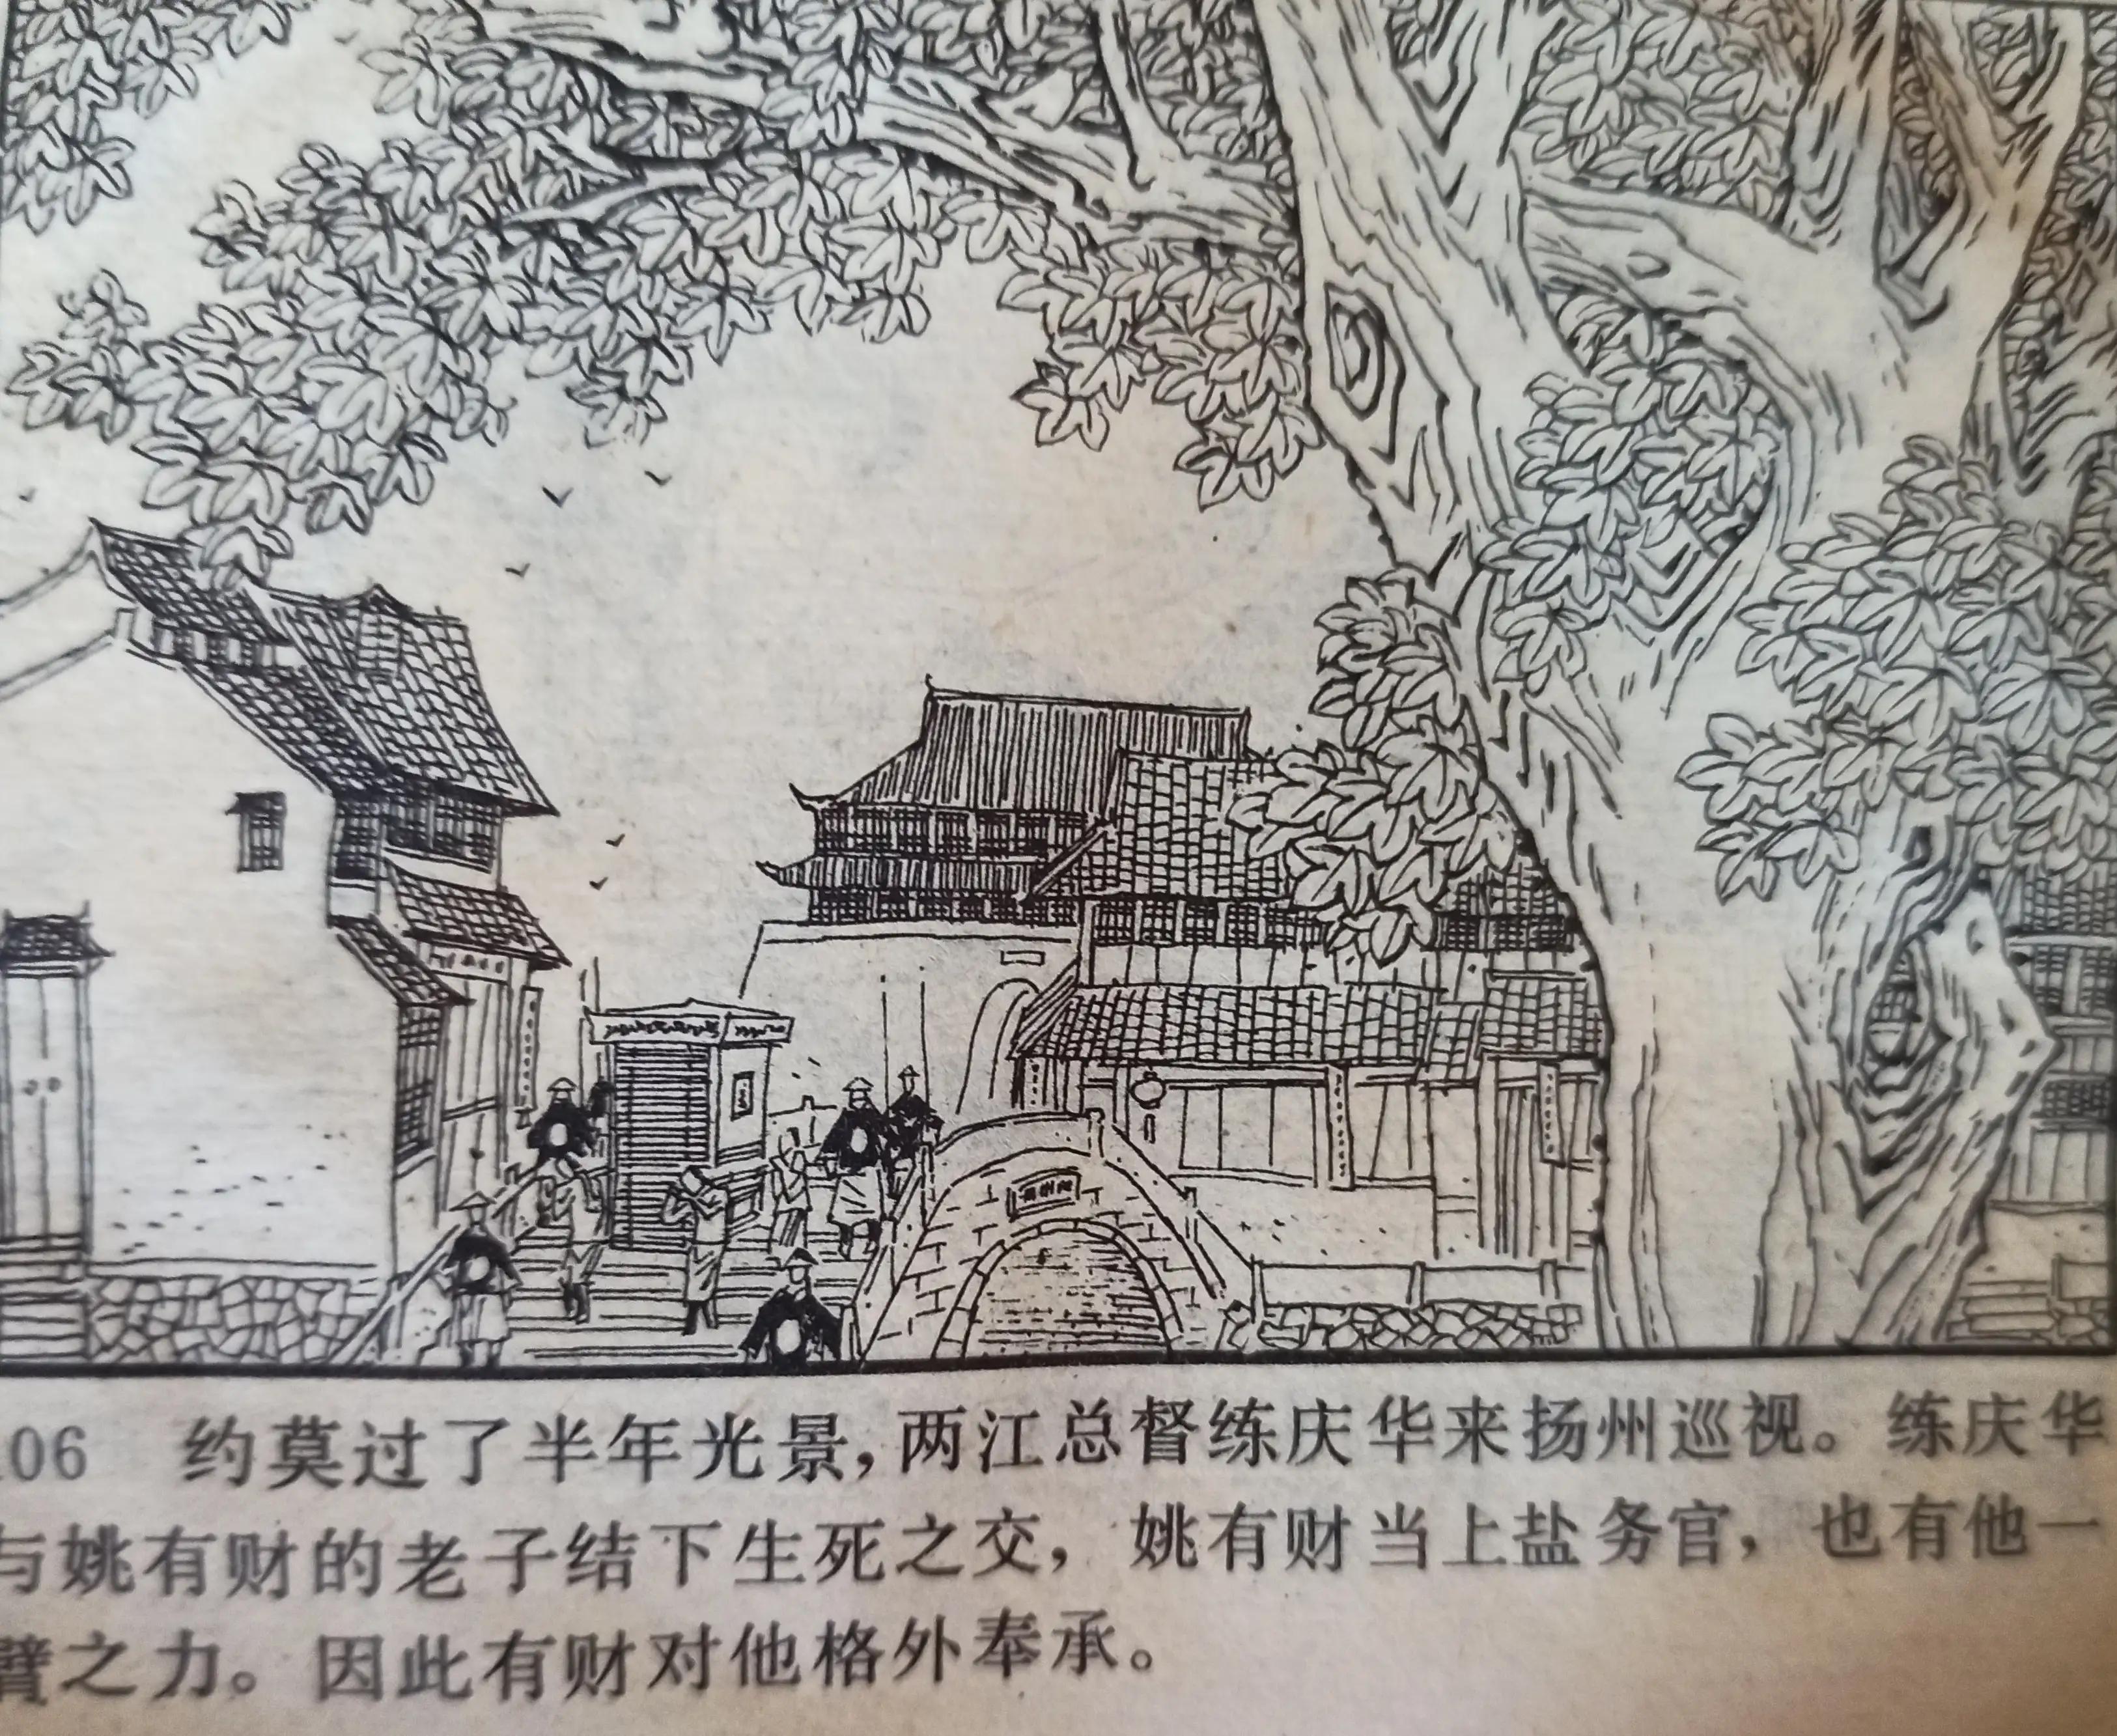 106 约莫过了半年光景，两江总督练庆华来扬州巡视。练庆华
与姚有财的老子结下生死之交，姚有财当上盐务官，也有他一
臂之力。因此有财对他格外奉承。